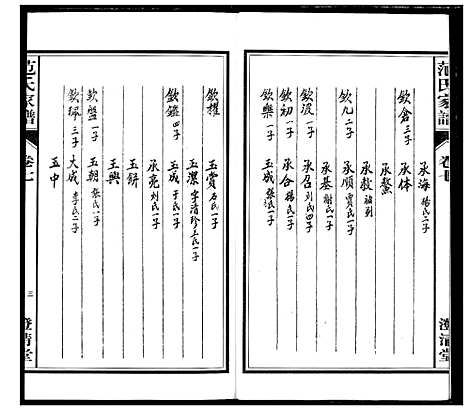 范氏家譜
卷七
澄清堂
承海 楊氏二子
欽倉 三子 承体
承鰲
承敖 
欽九 二子 承順 賈氏二子
承基 謝氏一子
欽汲 一子 承召 刘氏四子
欽初 一子 承合 楊氏一子
欽樂 一子 玉成 張氏一子
欽擢 玉賞 石氏一子
玉潔 字清珍 王氏一子
欽鑑 四子 玉成 于氏一子
承亮 刘氏一子
玉餅
玉興
欽盤 一子 玉朝 張氏一子
欽珮 三子 大成 李氏二子
玉中
范氏家譜
卷七
三
澄清堂